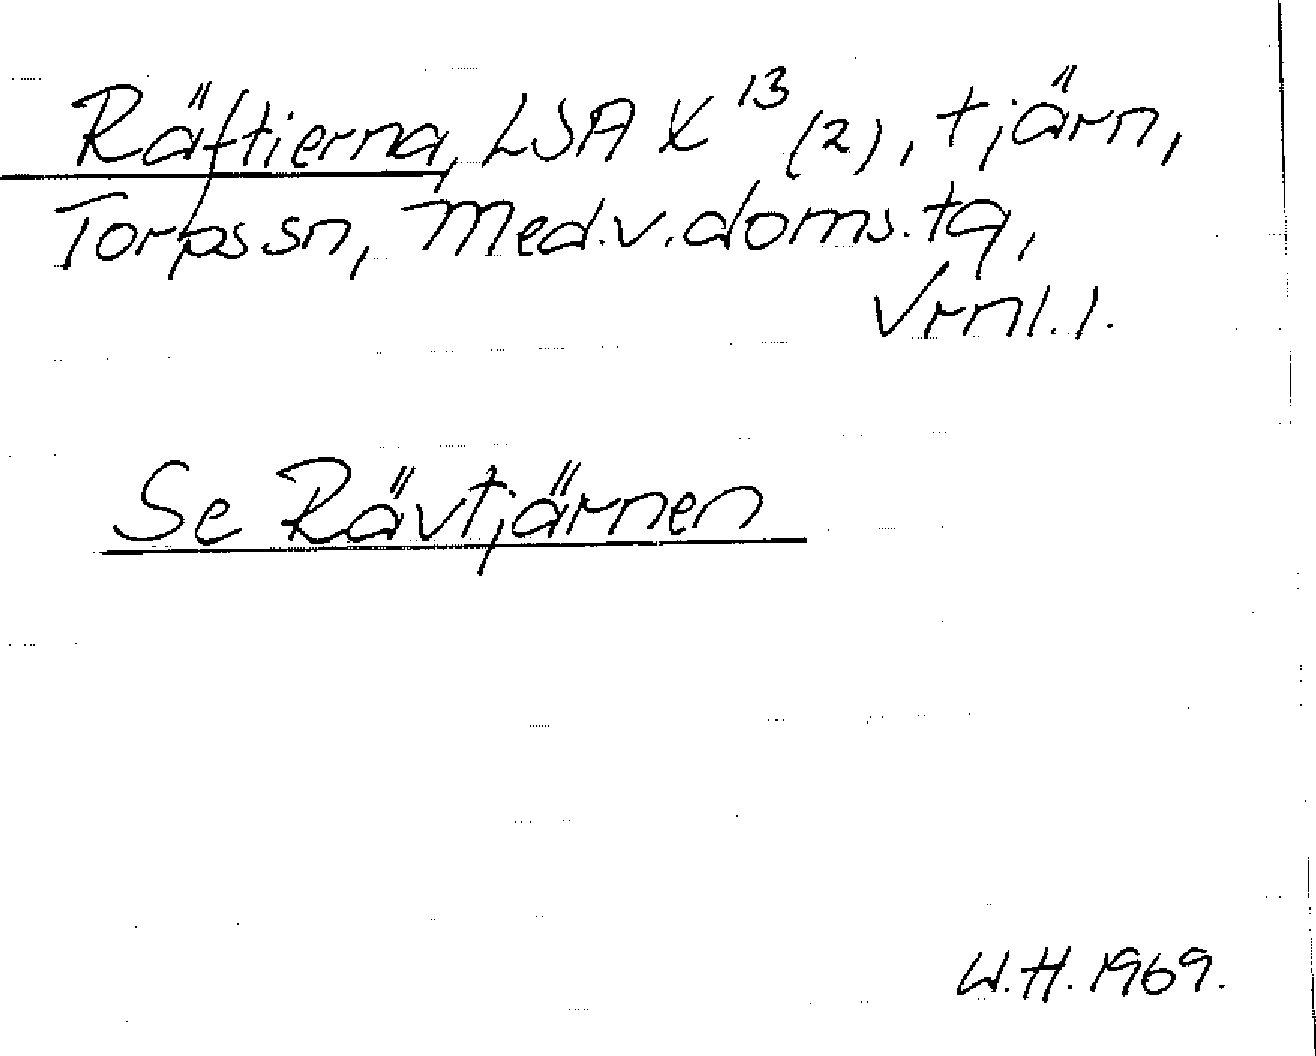 Räftierna, LSA X¹³ (2), tjärn,
Torps sn, Med.v.doms.tg,
Vrml.l.
Se Rävtjärnen
W.H. 1969.